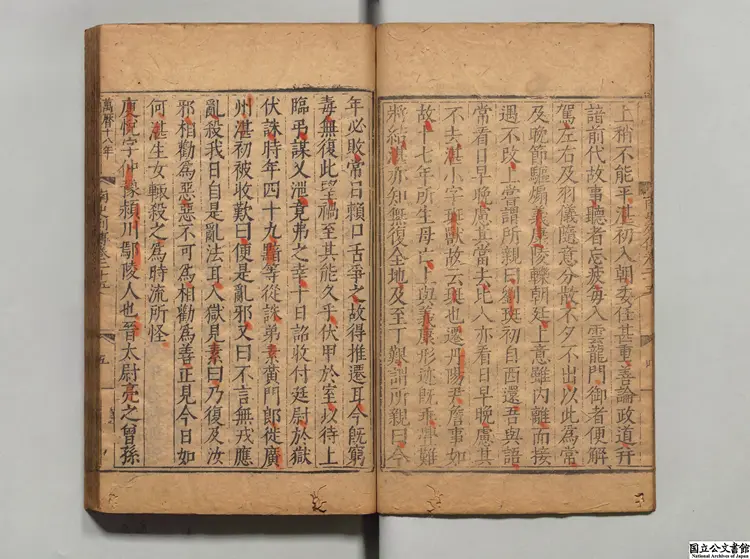 上稍不能平湛初入朝委任甚重善論政道并
諳前代故事聽者忘疲每入雲龍門御者便解
駕左右及羽儀隨意分散不夕不出以此為常
及晚節驅煽義康陵轢朝廷上意雖內離而接
遇不改上嘗謂所親曰劉班初自西還吾與語
常看日早晚慮其當去比入亦看日早晚慮其
不去湛小字斑獸故云班也遷丹陽尹詹事如
故十七年所生母亡上與義康形迹既乖釁難
將結湛亦知無復全地及至丁艱謂所親曰今
年必敗常日賴口舌爭之故得推遷耳今既窮
毒無復此望禍至其能久乎伏甲於室以待上
臨弔謀又泄竟弗之幸十日詔收付廷尉於獄
伏誅時年四十九黯等從誅弟素黃門郎徙廣
州湛初被收歎曰便是亂邪又曰不言無我應
亂殺我日自是亂法耳入獄見素曰乃復及汝
邪相勸為惡惡不可為相勸為善正見今日如
何湛生女輙殺之為時流所怪
庾悅字仲豫潁川鄢陵人也晉太尉亮之曾孫
萬曆十八年
南史列傳卷二十五
五
国立公文書館
National Archives of Japan